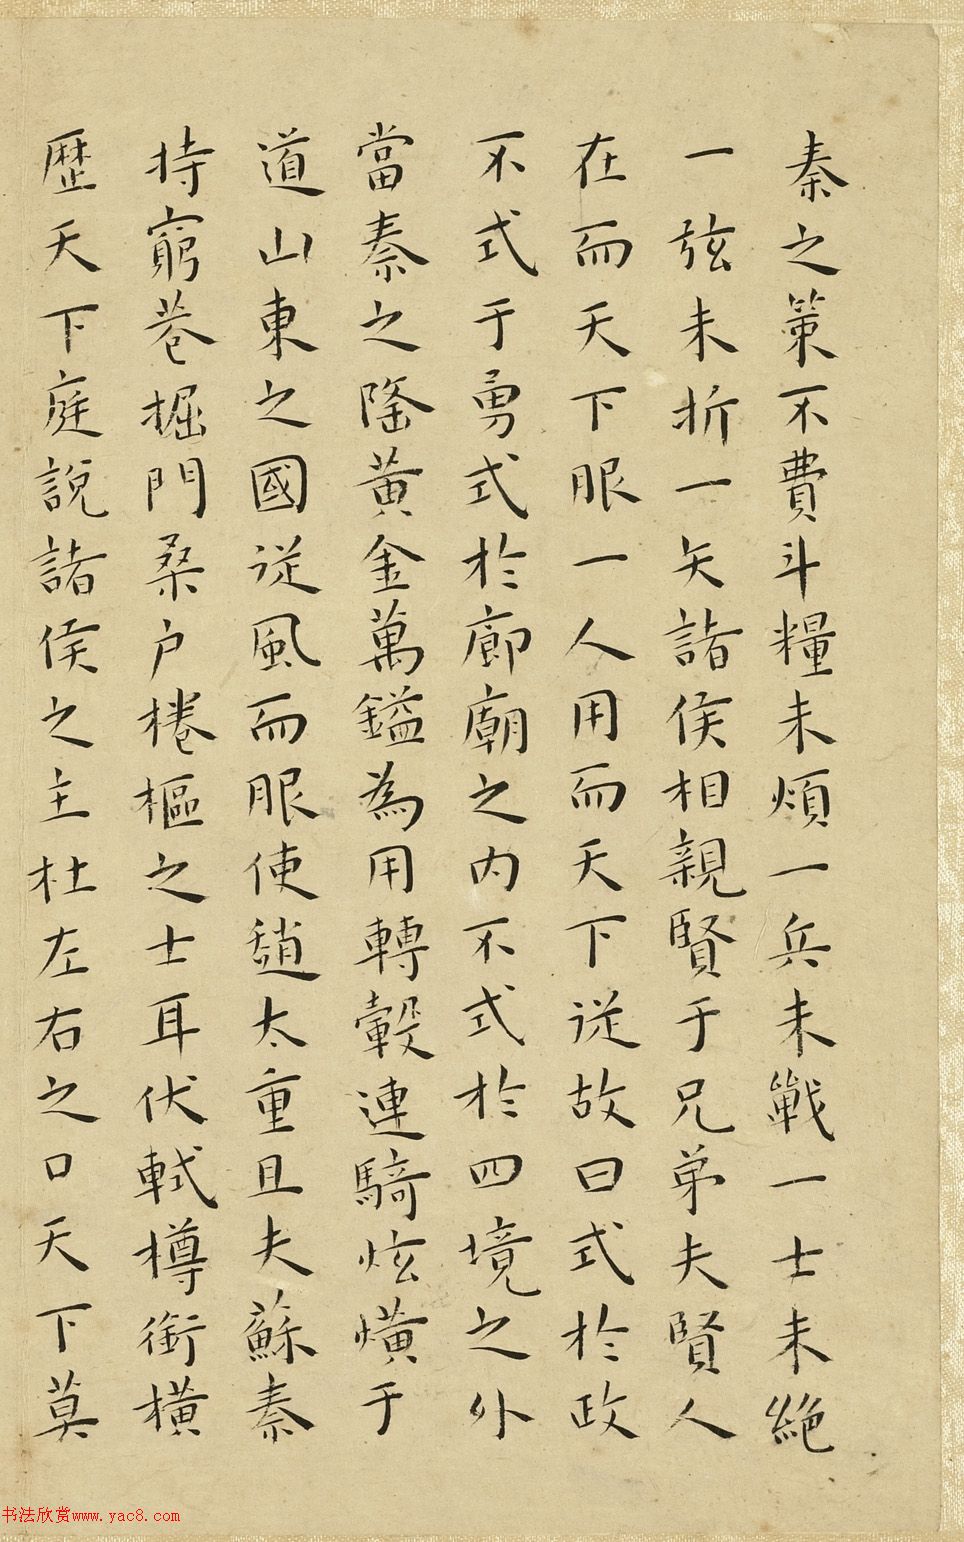 秦之策不費斗糧未煩一兵未戰一士未絶
一弦未折一矢諸侯相親賢于兄弟夫賢人
在而天下服一人用而天下從故曰式於政
不式于勇式於廊廟之内不式於四境之外
當秦之隆黃金萬鎰為用轉轂連騎炫熿于
道山東之國從風而服使趙太重且夫蘇秦
特窮巷掘門桑户棬樞之士耳伏軾撙銜橫
歷天下庭說諸侯之主杜左右之口天下莫
书法欣赏www.yac8.com